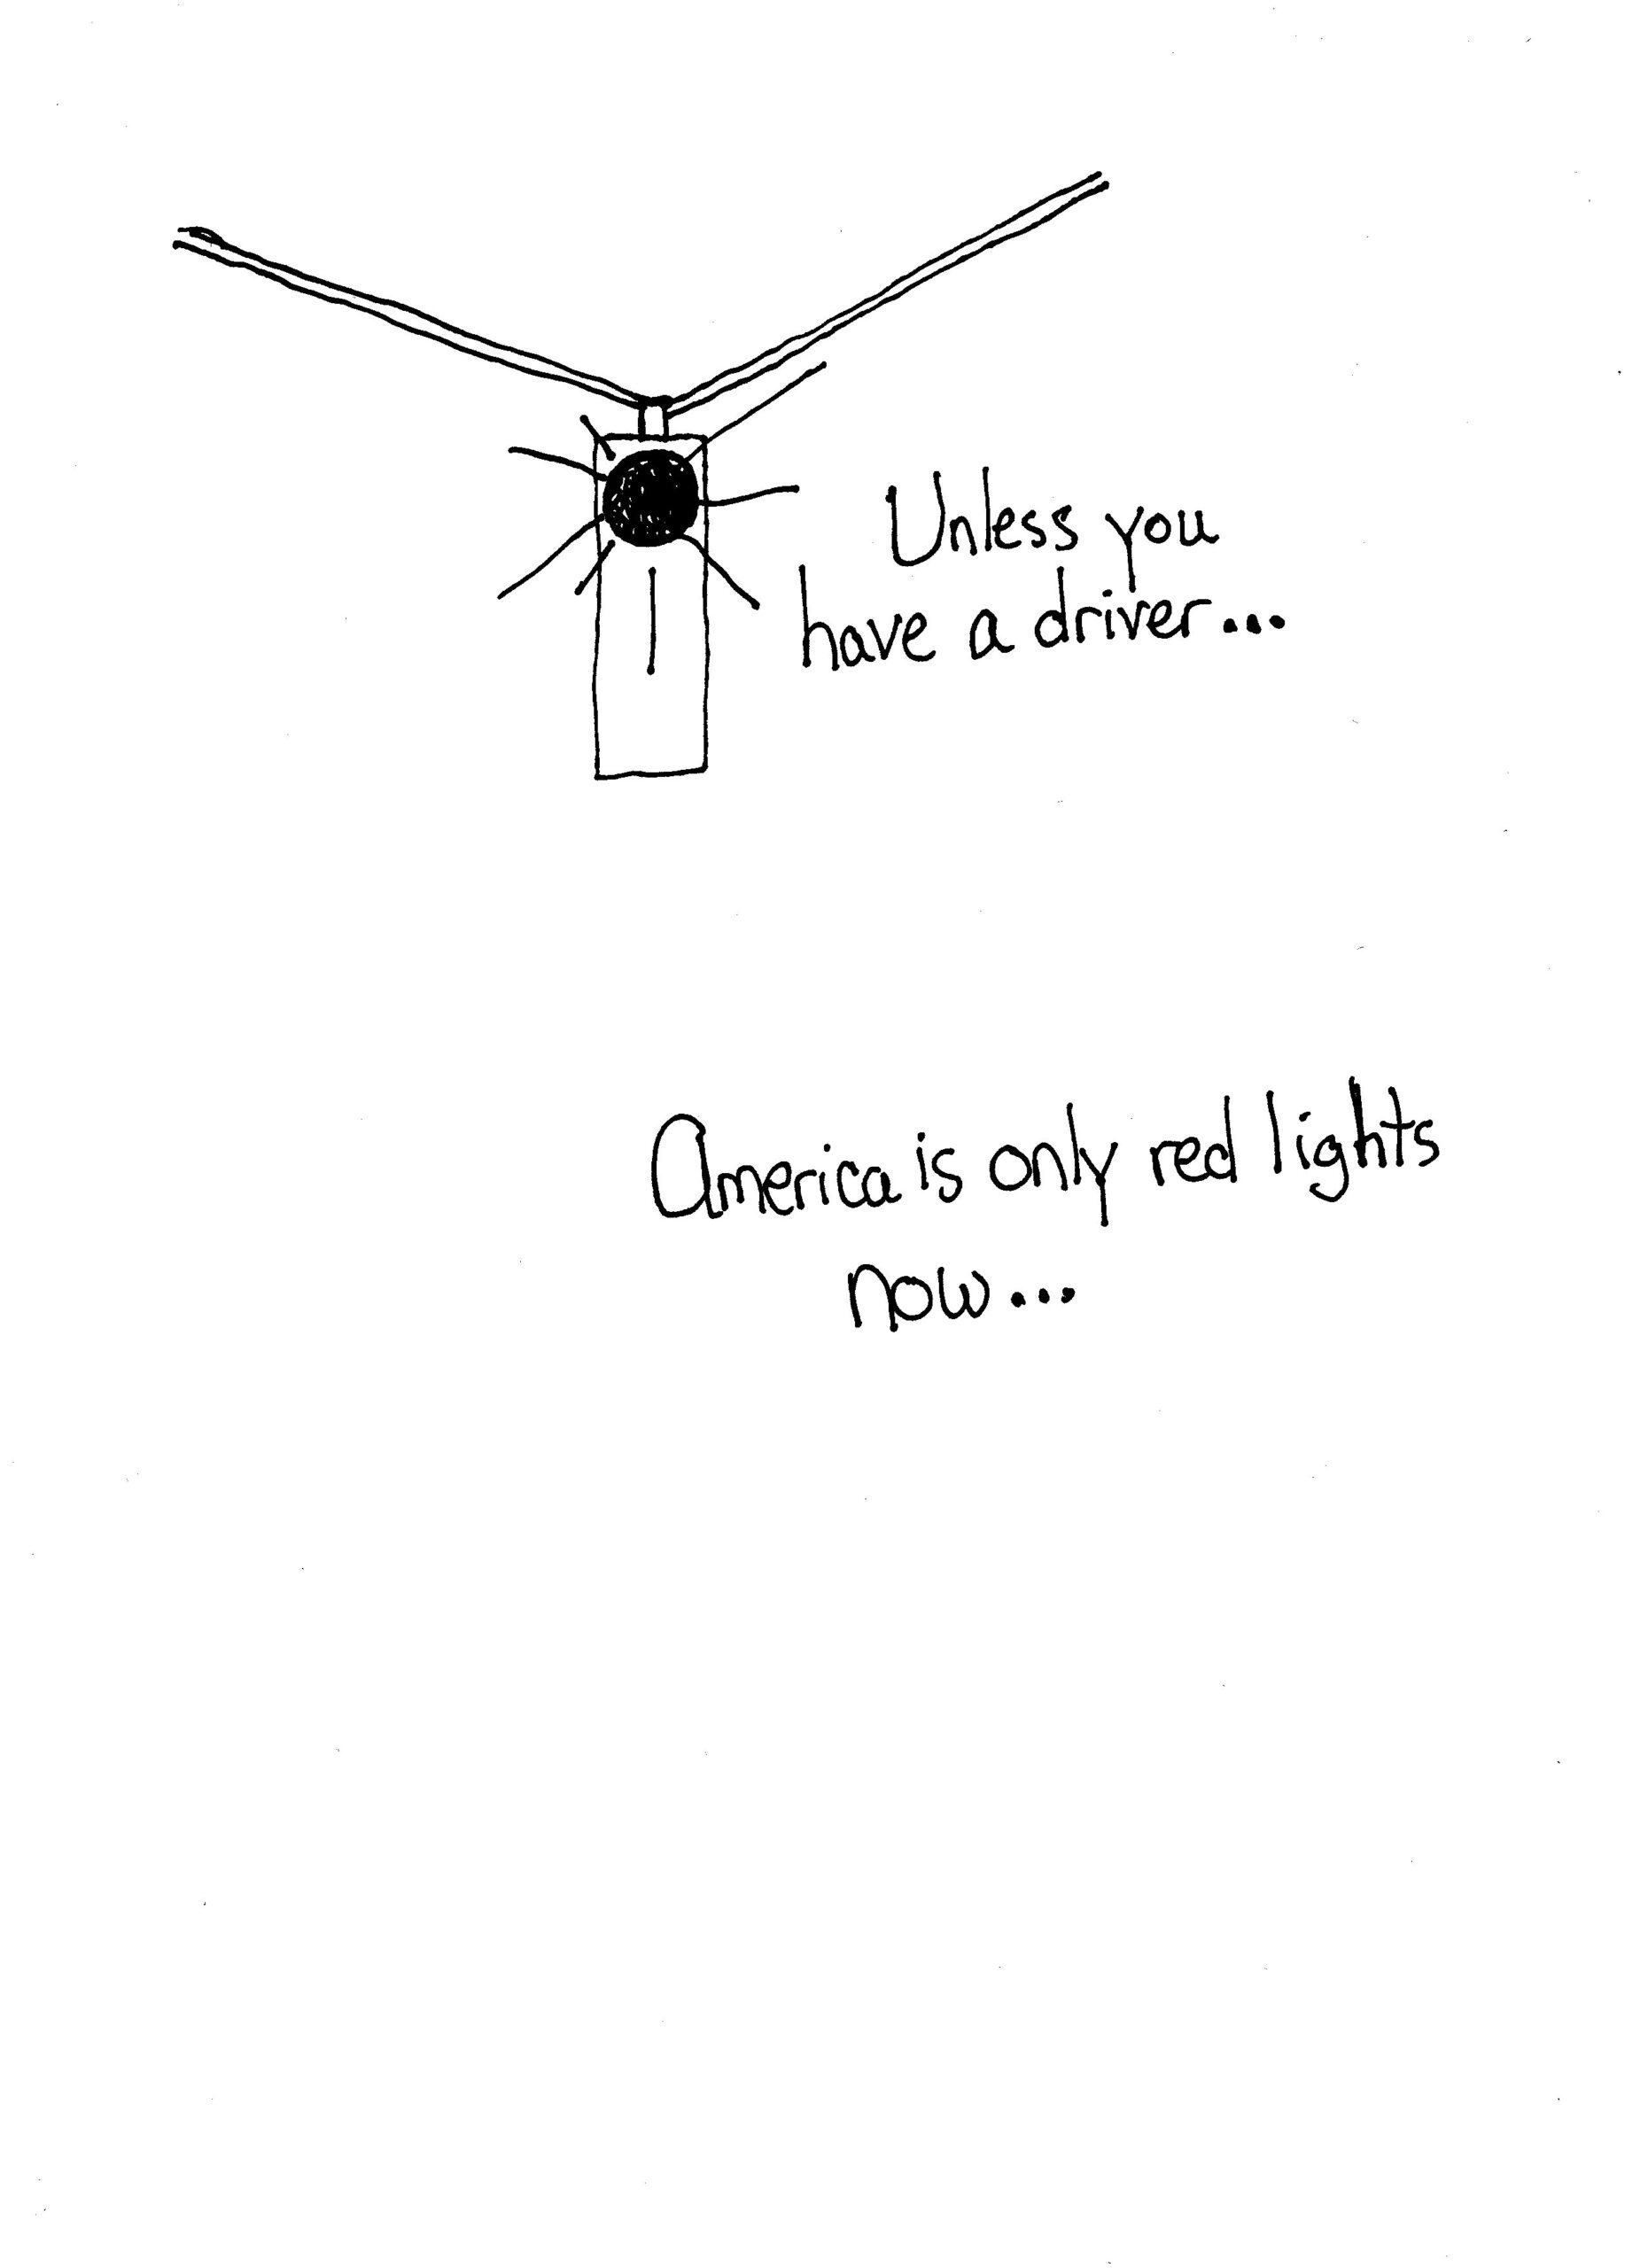 Unless you
have a driver...
America is only red lights
now...